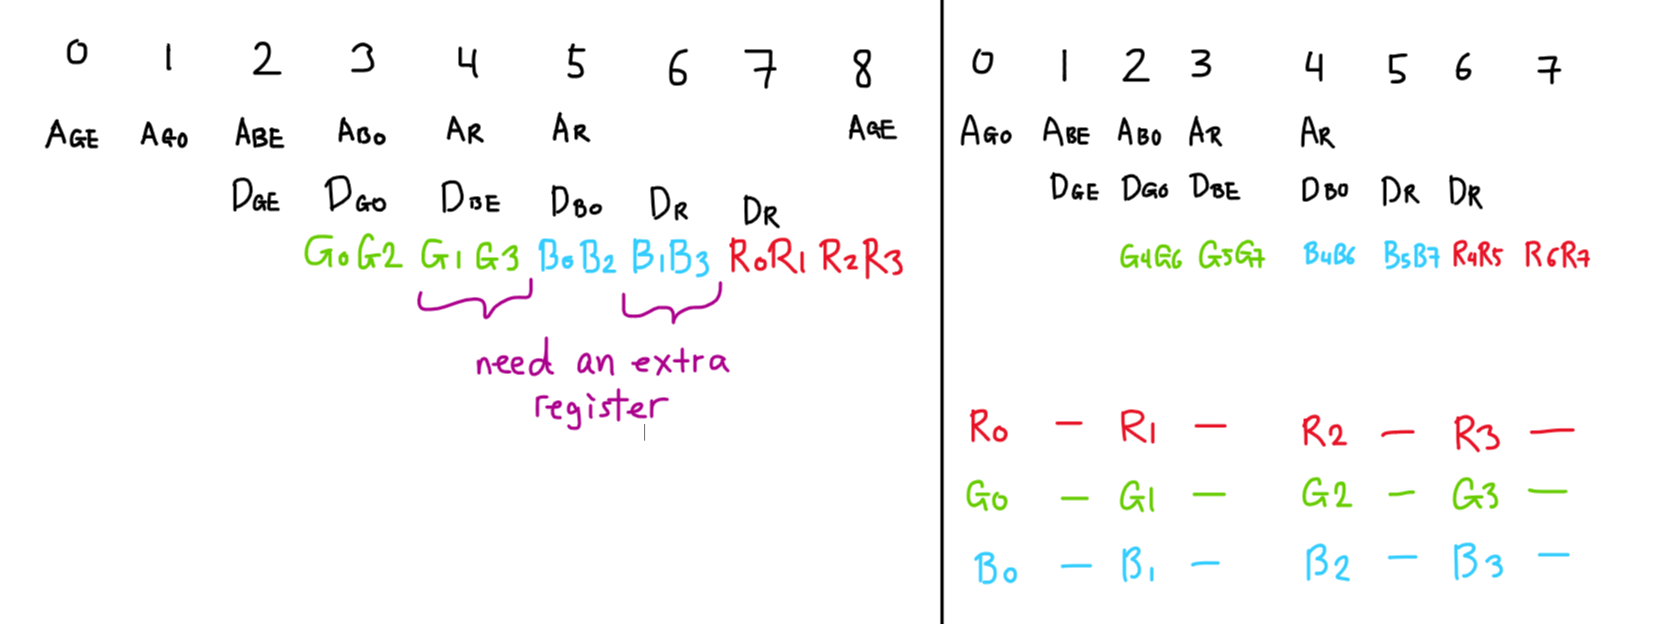 0 1 2 3 4 5 6 7 8
AGE AGO ABE ABO AR AR AGE
DGE DGO DBE DBO DR DR
G0G2 G1G3 B0B2 B1B3 R0R1 R2R3
need an extra
register
0 1 2 3 4 5 6 7
AGO ABE ABO AR AR
DGE DGO DBE DBO DR DR
G4G6 G5G7 B4B6 B5B7 R4R5 R6R7
R0 — R1 — R2 — R3 —
G0 — G1 — G2 — G3 —
B0 — B1 — B2 — B3 —